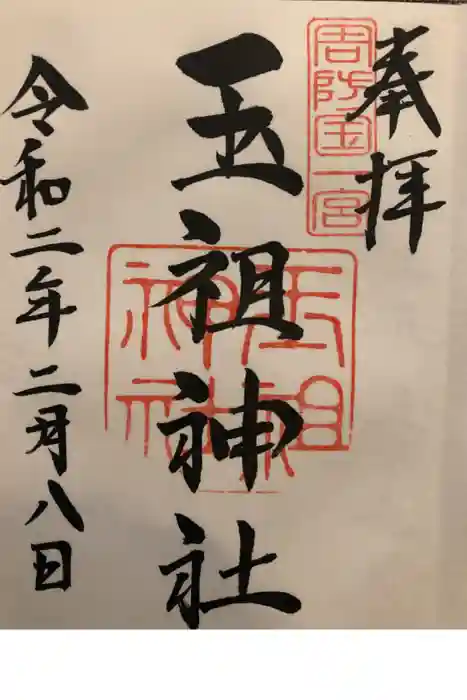 奉拝
周防国一宮
玉祖神社
玉祖神社
令和二年二月八日